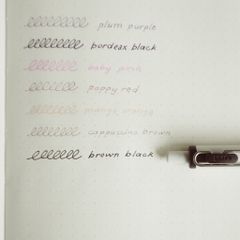 plum purple
bordeax black
baby pink
poppy red
mango orange
cappuccino brown
brown black